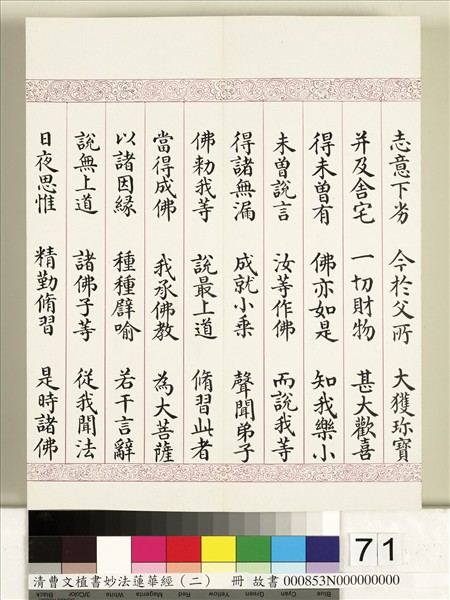 志意下劣 今於父所 大獲珎寶
并及舍宅 一切財物 甚大歡喜
得未曾有 佛亦如是 知我樂小
未曾說言 汝等作佛 而說我等
得諸無漏 成就小乘 聲聞弟子
佛勑我等 說最上道 脩習此者
當得成佛 我承佛教 為大菩薩
以諸因縁 種種譬喻 若干言辭
說無上道 諸佛子等 從我聞法
日夜思惟 精勤脩習 是時諸佛
71
清曹文植書妙法蓮華經（二） 冊 故書 000853N000000000
Blue Cyan Green Yellow Red Magenta White 3/Color Black